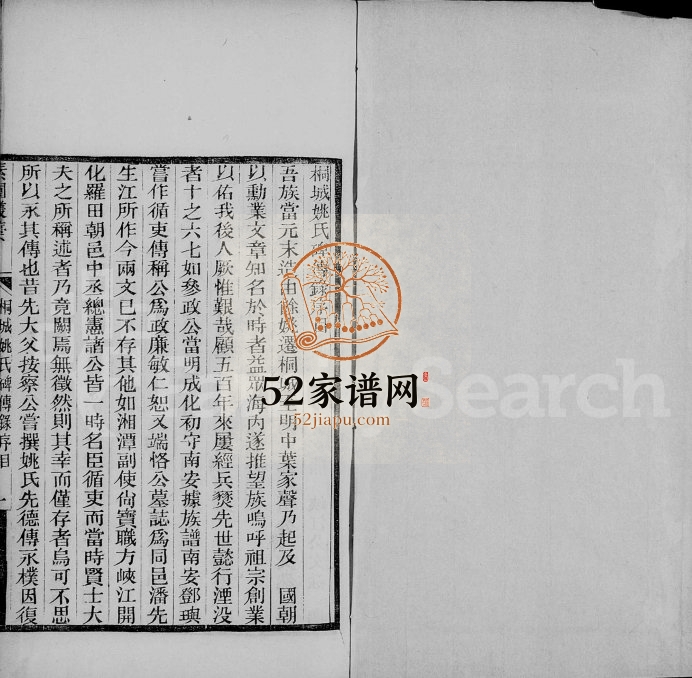 桐城姚氏碑傳錄序目
吾族當元末造由餘姚遷桐明中葉家聲乃起及 國朝
以勳業文章知名於時者益眾海內遂推望族嗚呼祖宗創業
以佑我後人厥惟艱哉顧五百年來屢經兵燹先世懿行湮没
者十之六七如參政公當明成化初守南安據族譜南安鄧璵
嘗作循吏傳稱公爲政廉敏仁恕又端恪公墓誌爲同邑潘先
生江所作今兩文已不存其他如湘潭副使尙寶職方峽江開
化羅田朝邑中丞總憲諸公皆一時名臣循吏而當時賢士大
夫之所稱述者乃竟闕焉無徵然則其幸而僅存者烏可不思
所以永其傳也昔先大父按察公嘗撰姚氏先德傳永樸因復
桐城姚氏碑傳錄序目 一
52家谱网
52jiapu.com
Search